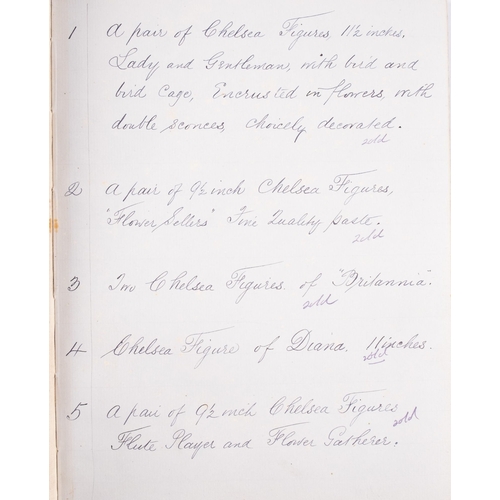 1 A pair of Chelsea Figures, 11½ inches.
Lady and Gentleman, with bird and
bird Cage, Encrusted in flowers, with
double sconces, choicely decorated.
sold
2 A pair of 9½ inch Chelsea Figures,
"Flower Sellers" Fine Quality paste.
sold
3 Two Chelsea Figures of "Britannia".
sold
4 Chelsea Figure of Diana, 11 inches.
sold
5 A pair of 9½ inch Chelsea Figures
sold
Flute Player and Flower Gatherer.